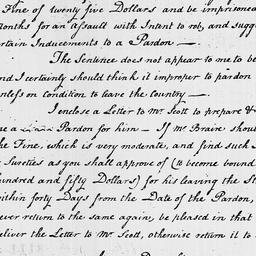 Fine of twenty five Dollars and be imprisoned
Months for an assault with Intent to rob, and sugg
ertain Inducements to a Pardon —
The Sentence does not appear to me to be
nd I certainly should think it improper to pardon
unless on Condition to leave the country —
I enclose a Letter to Mr. Scott to prepare &
e a Pardon for him — If Mr. Braire shou
the Fine, which is very moderate, and find such
Sureties as you shall approve of (to become bound
hundred and fifty Dollars) for his leaving the St
within forty Days from the Date of the Pardon,
ever return to the same again, be pleased in that
eliver the Letter to Mr. Scott, otherwise return it to